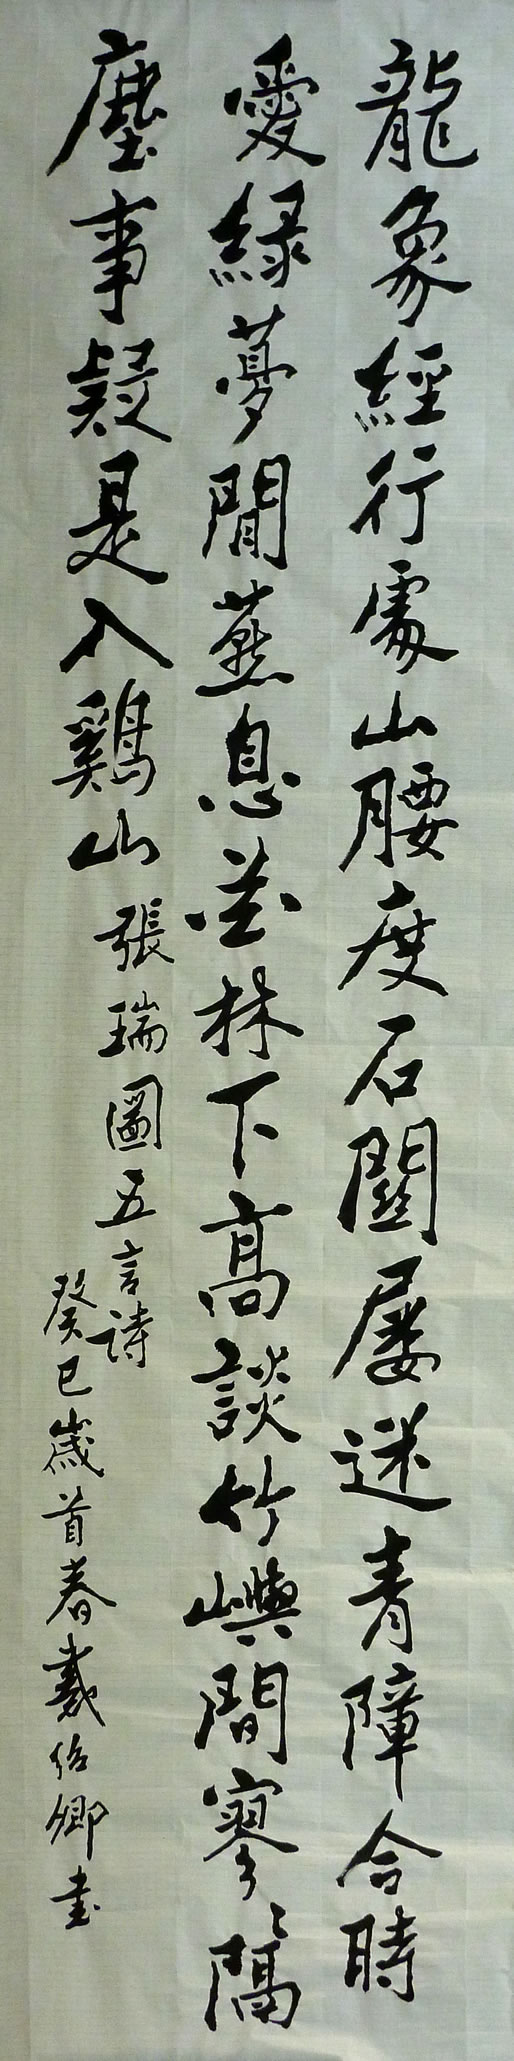 龍象經行處山腰度石關屢迷青障合時
愛綠夢閒燕息花林下高談竹嶼間寥〻隔
塵事疑是入鷄山
張瑞圖五言詩
癸巳歲首春戴紹卿書